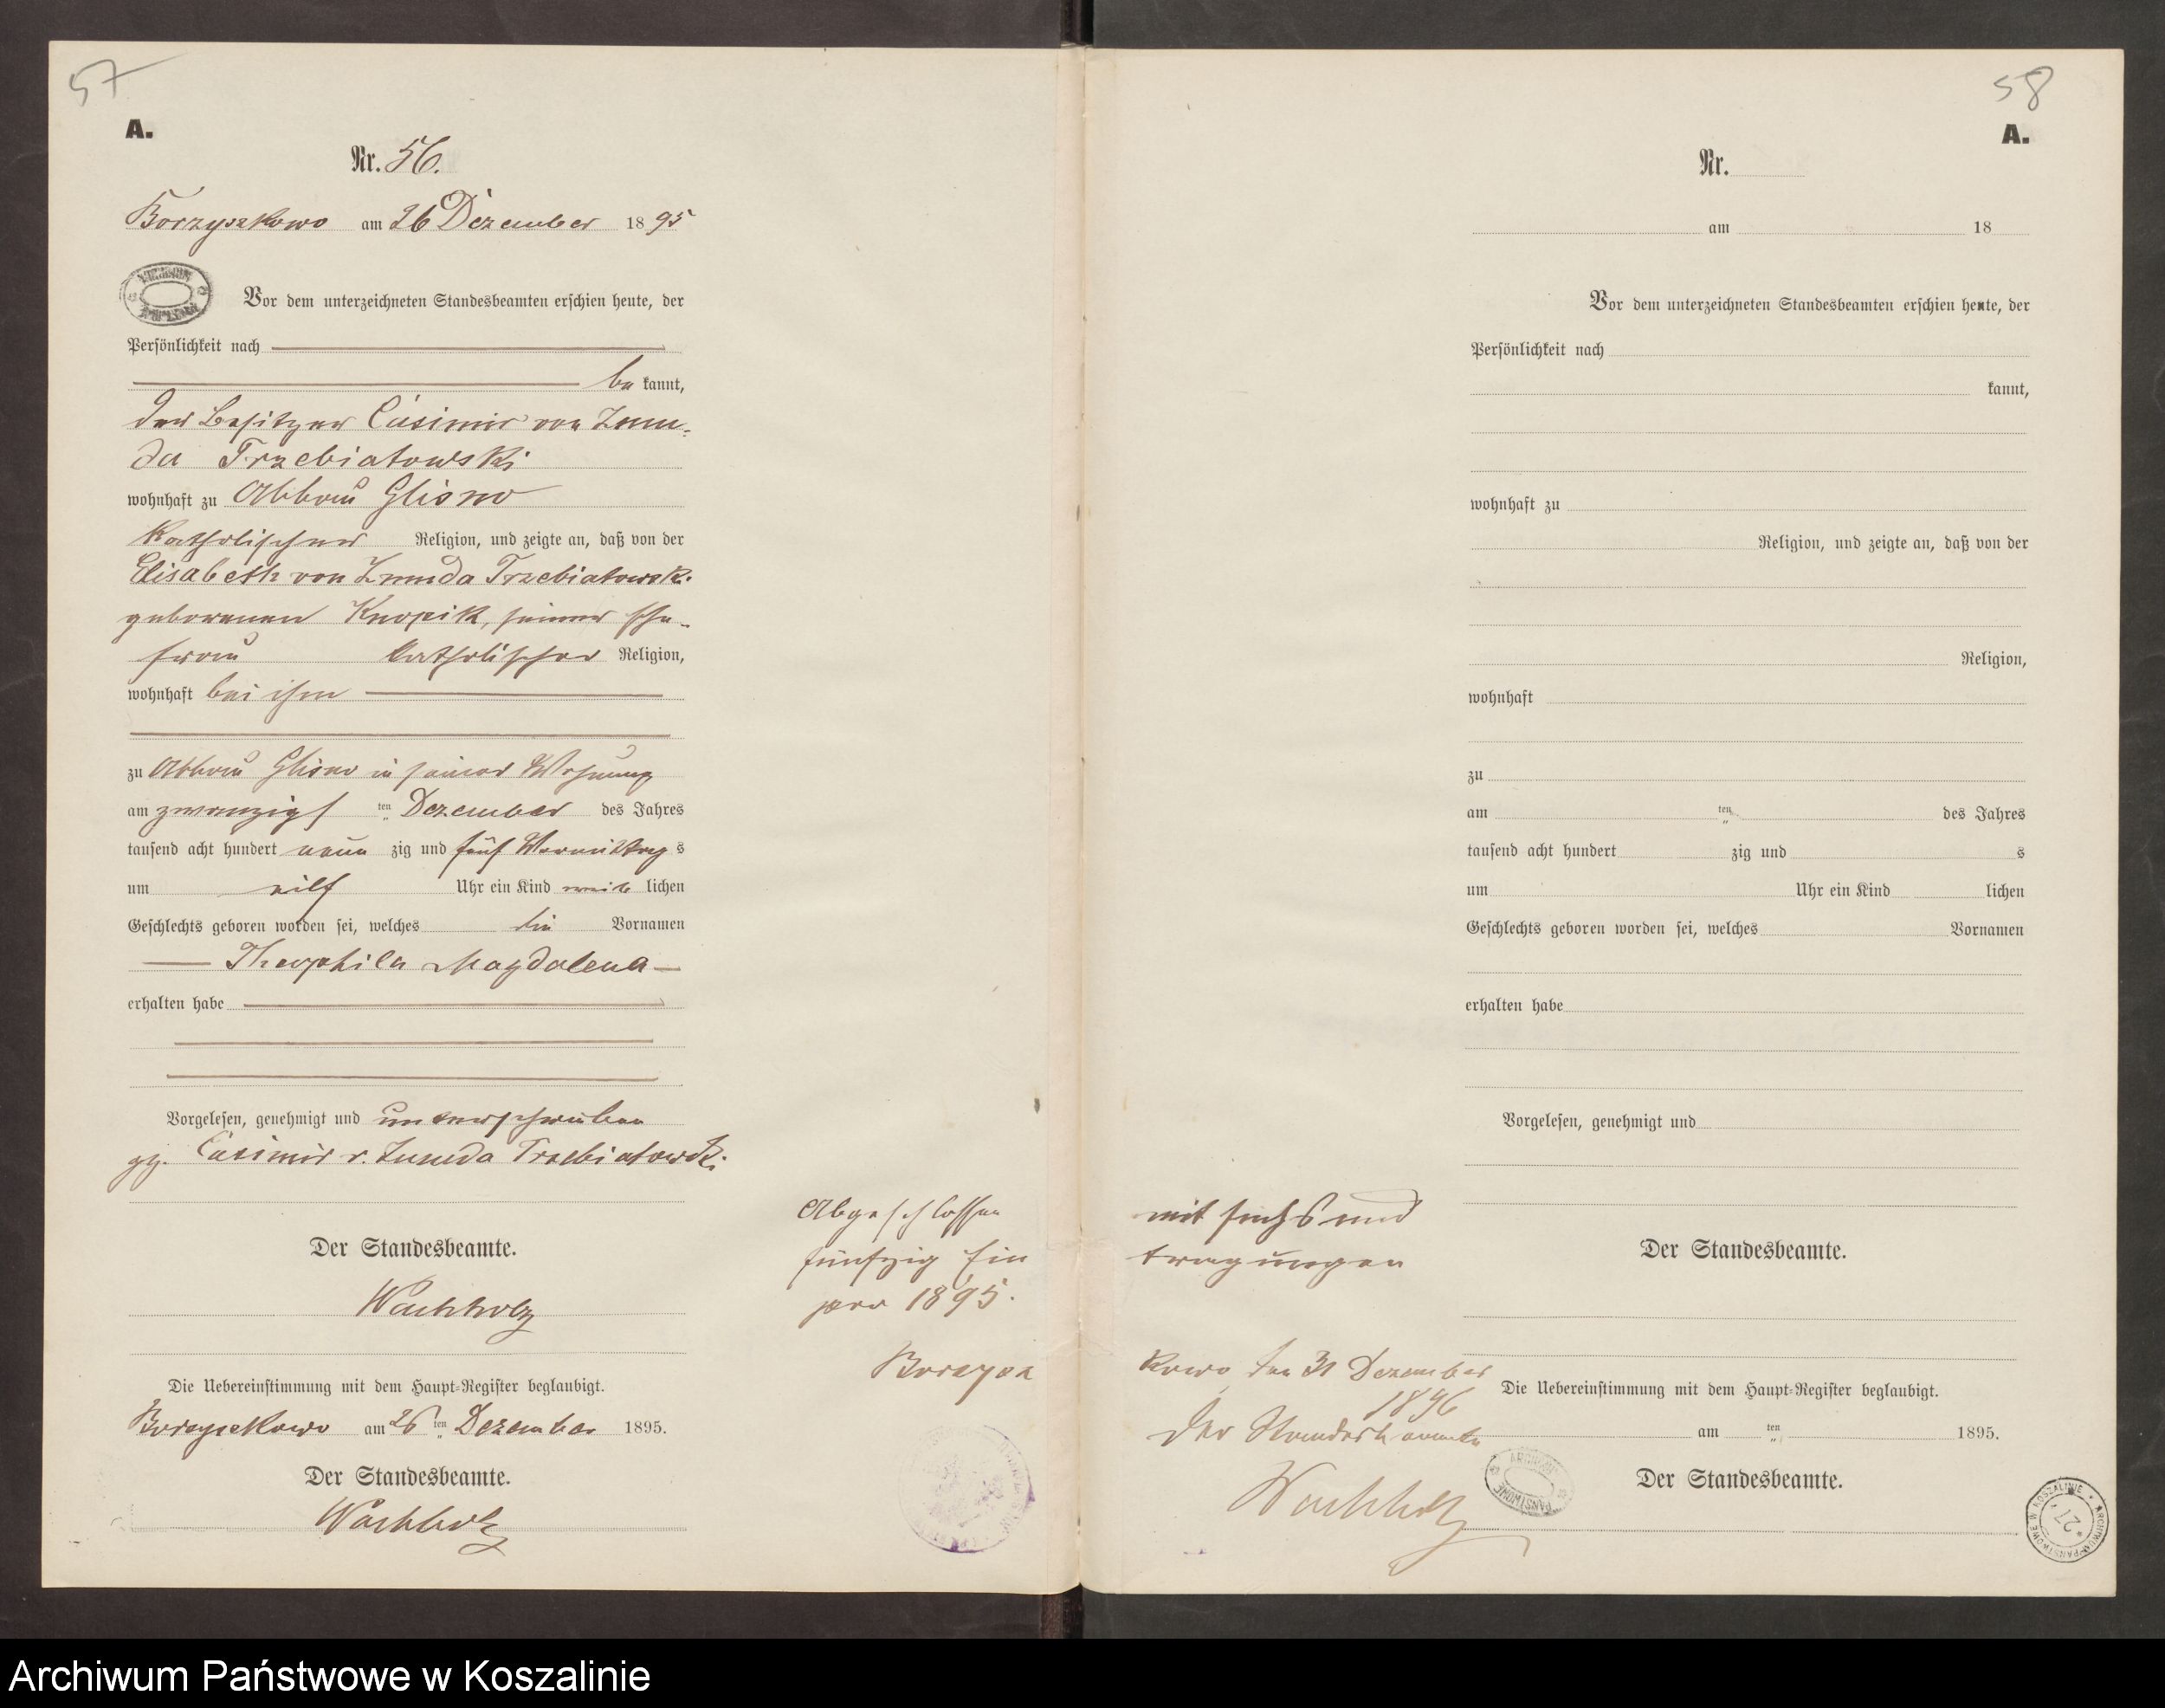 57
A.
Nr. 56.
Borzyszkowo am 26 Dezember 1895
Vor dem unterzeichneten Standesbeamten erschien heute, der
Persönlichkeit nach
be kannt,
der Besitzer Casimir von Zmu-
da Trzebiatowski
wohnhaft zu Abbau Glisno
katholischer Religion, und zeigte an, daß von der
Elisabeth von Zmuda Trzebiatowski
geborenen Knopik, seiner Ehe-
frau katholischer Religion,
wohnhaft bei ihm
zu Abbau Glisno in seiner Wohnung
am zwanzigsten Dezember des Jahres
tausend acht hundert neun zig und fünf Vormittag s
um elf Uhr ein Kind weib lichen
Geschlechts geboren worden sei, welches die Vornamen
Theophila Magdalena
erhalten habe
Vorgelesen, genehmigt und unterschrieben
gez. Casimir v. Zmuda Trzebiatowski
Der Standesbeamte.
Wachholz
Die Uebereinstimmung mit dem Haupt-Register beglaubigt.
Borzyszkowo am 26 ten Dezember 1895.
Der Standesbeamte.
Wachholz
Abgeschlossen mit sechs und
fünfzig Ein tragungen
pro 1895.
Borzysz kowo den 31 Dezember
1896
Der Standesbeamte
Wachholz
58
A.
Nr.
am 18
Vor dem unterzeichneten Standesbeamten erschien heute, der
Persönlichkeit nach
kannt,
wohnhaft zu
Religion, und zeigte an, daß von der
Religion,
wohnhaft
zu
am ten des Jahres
tausend acht hundert zig und s
um Uhr ein Kind lichen
Geschlechts geboren worden sei, welches Vornamen
erhalten habe
Vorgelesen, genehmigt und
Der Standesbeamte.
Die Uebereinstimmung mit dem Haupt-Register beglaubigt.
am ten 1895.
Der Standesbeamte.
ARCHIWUM PAŃSTWOWE
ARCHIWUM PAŃSTWOWE W KOSZALINIE
* 27 *
Archiwum Państwowe w Koszalinie